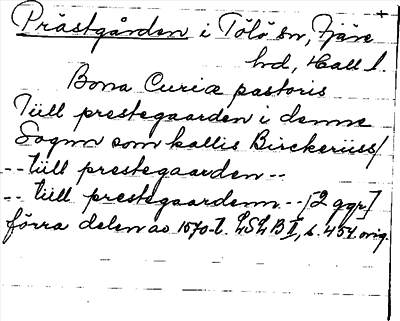 Prästgården i Tölö sn, Fjäre
hd, Hall l.
Bona Curiæ pastoris
Tiill prestegaarden i denne
Sognn som kallis Birckeriiss/
-- tiill prestegaarden --
-- tiill prestegaardenn -- [2 ggr]
förra delen av 1570-t. LSLB II, s. 454. orig.